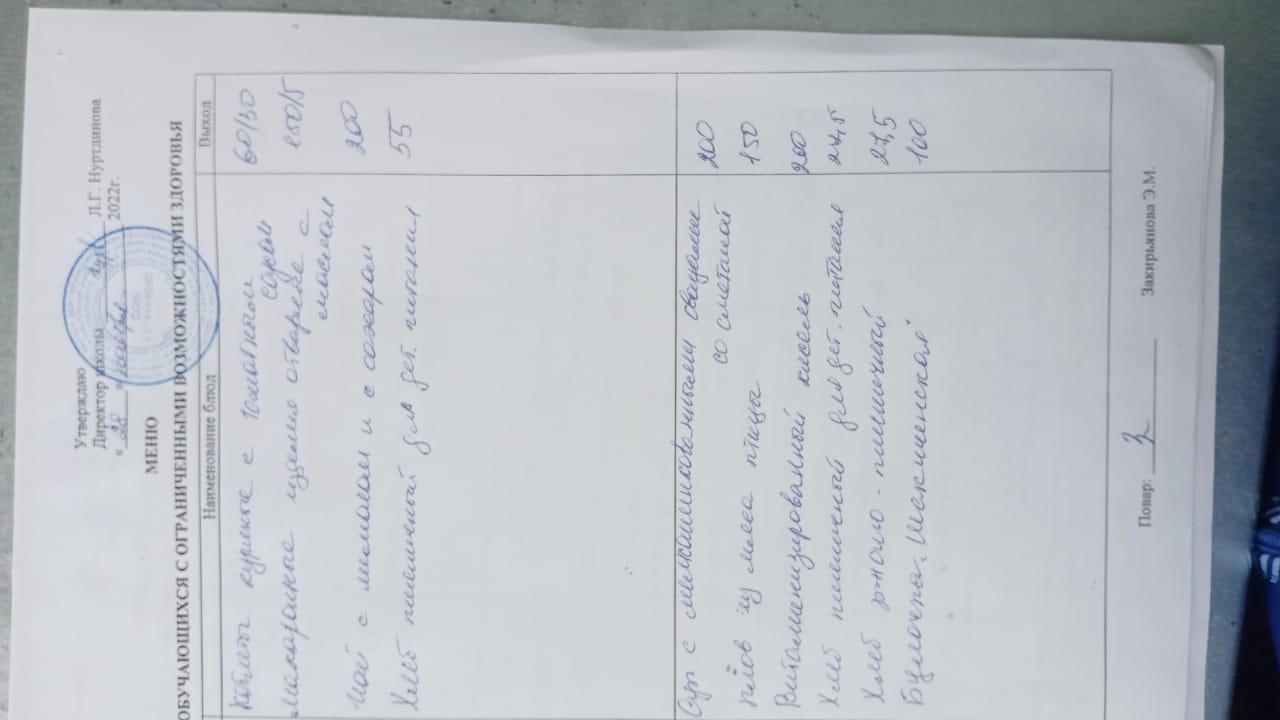 Утверждаю
Директор школы Л.Г. Нуртдинова
« 28 » ноября 2022г.
МЕНЮ
ОБУЧАЮЩИХСЯ С ОГРАНИЧЕННЫМИ ВОЗМОЖНОСТЯМИ ЗДОРОВЬЯ
Наименование блюд Выход
Котлеты куриные с томатным 60/30
соусом
макаронные изделия отварные с 150/5
маслом
Чай с лимоном и с сахаром 200
Хлеб пшеничный для дет. питания 55
Суп с мелкошинкованными овощами 200
со сметаной
Плов из мяса птицы 150
Витаминизированный кисель 200
Хлеб пшеничный для дет. питания 27,5
Хлеб ржано-пшеничный 27,5
Булочка "Шакшинская" 100
Повар: Закирьянова Э.М.